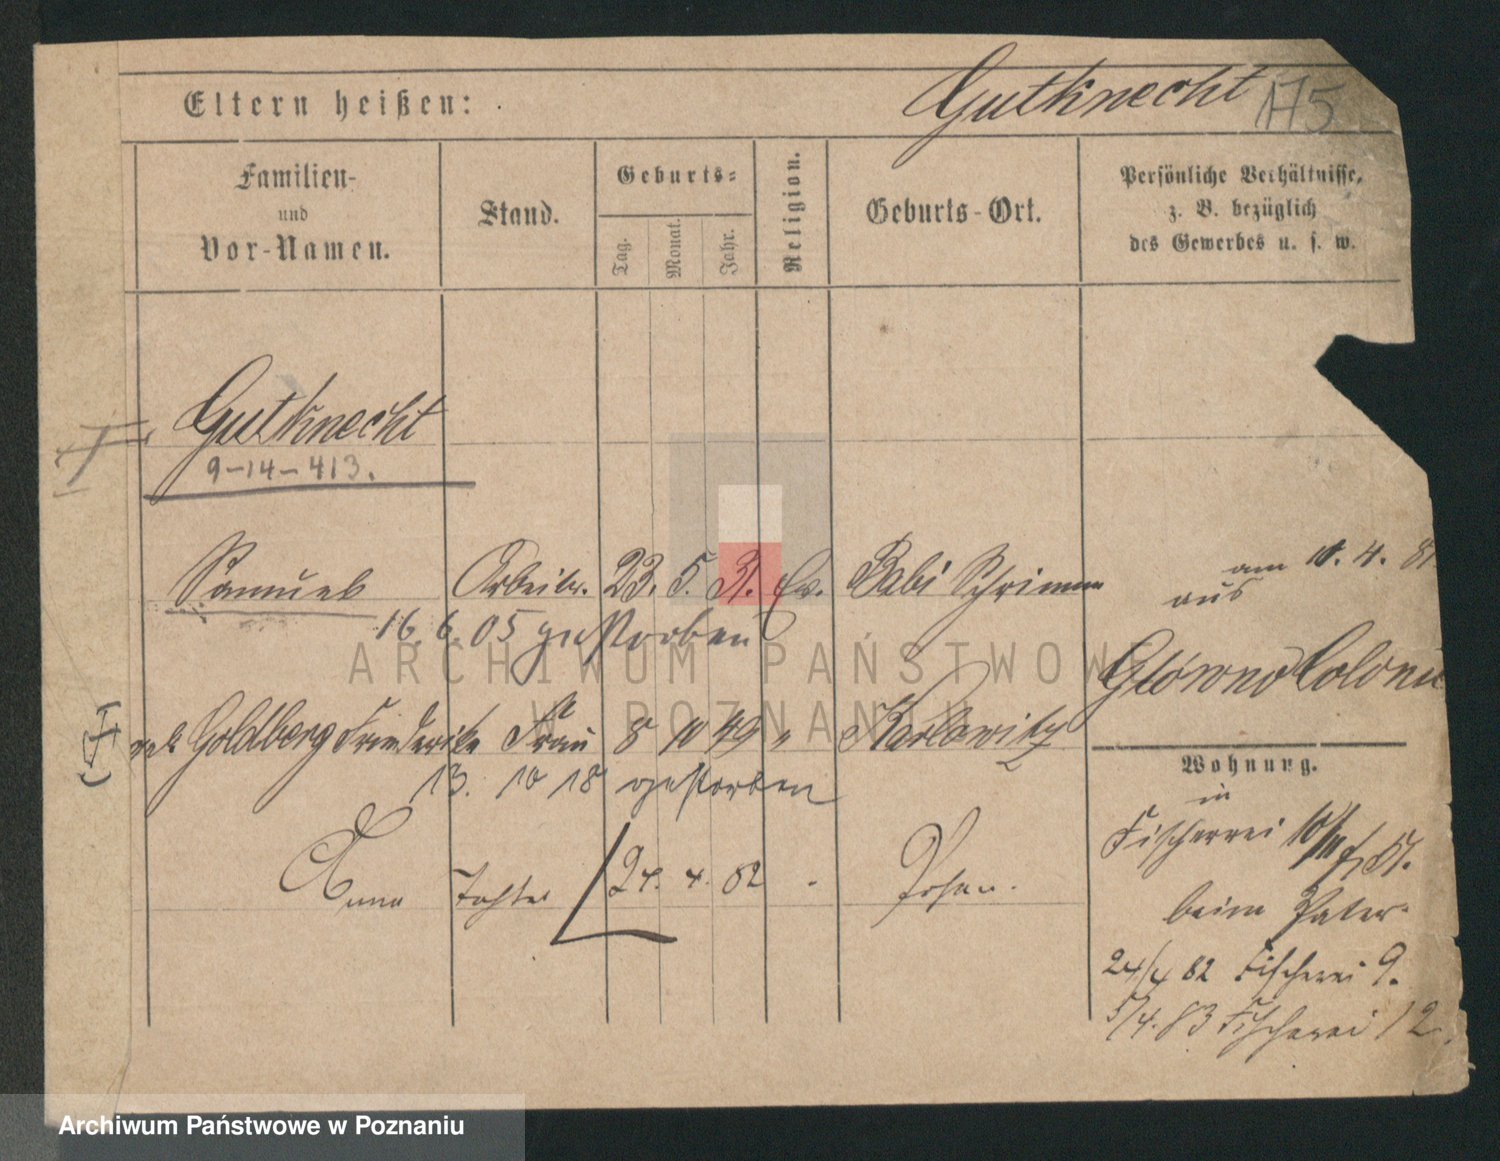 Gutknecht 175
Eltern heißen:
Familien-
und
Vor-Namen.
Stand.
Geburts-
Tag.
Monat.
Jahr.
Religion.
Geburts-Ort.
Persönliche Verhältnisse,
z. B. bezüglich
des Gewerbes u. s. w.
Gutknecht
9-14-413.
Samuel Arbeiter. 23. 5. 31. Ev. Babi Schrimm
am 11. 4. 81
aus
16. 6. 05 gestorben
Glówno Colonie
geb Goldberg Friederike Frau 8 10 49 " Karlowitz
13. 10 18 gestorben
Wohnung.
in
Fischerei
Anna Tochter 24. 4. 82 - Posen.
beim Vater.
24/4 82 Fischerei 9.
5/4. 83 Fischerei 12.
ARCHIWUM PAŃSTWOWE
W POZNANIU
Archiwum Państwowe w Poznaniu